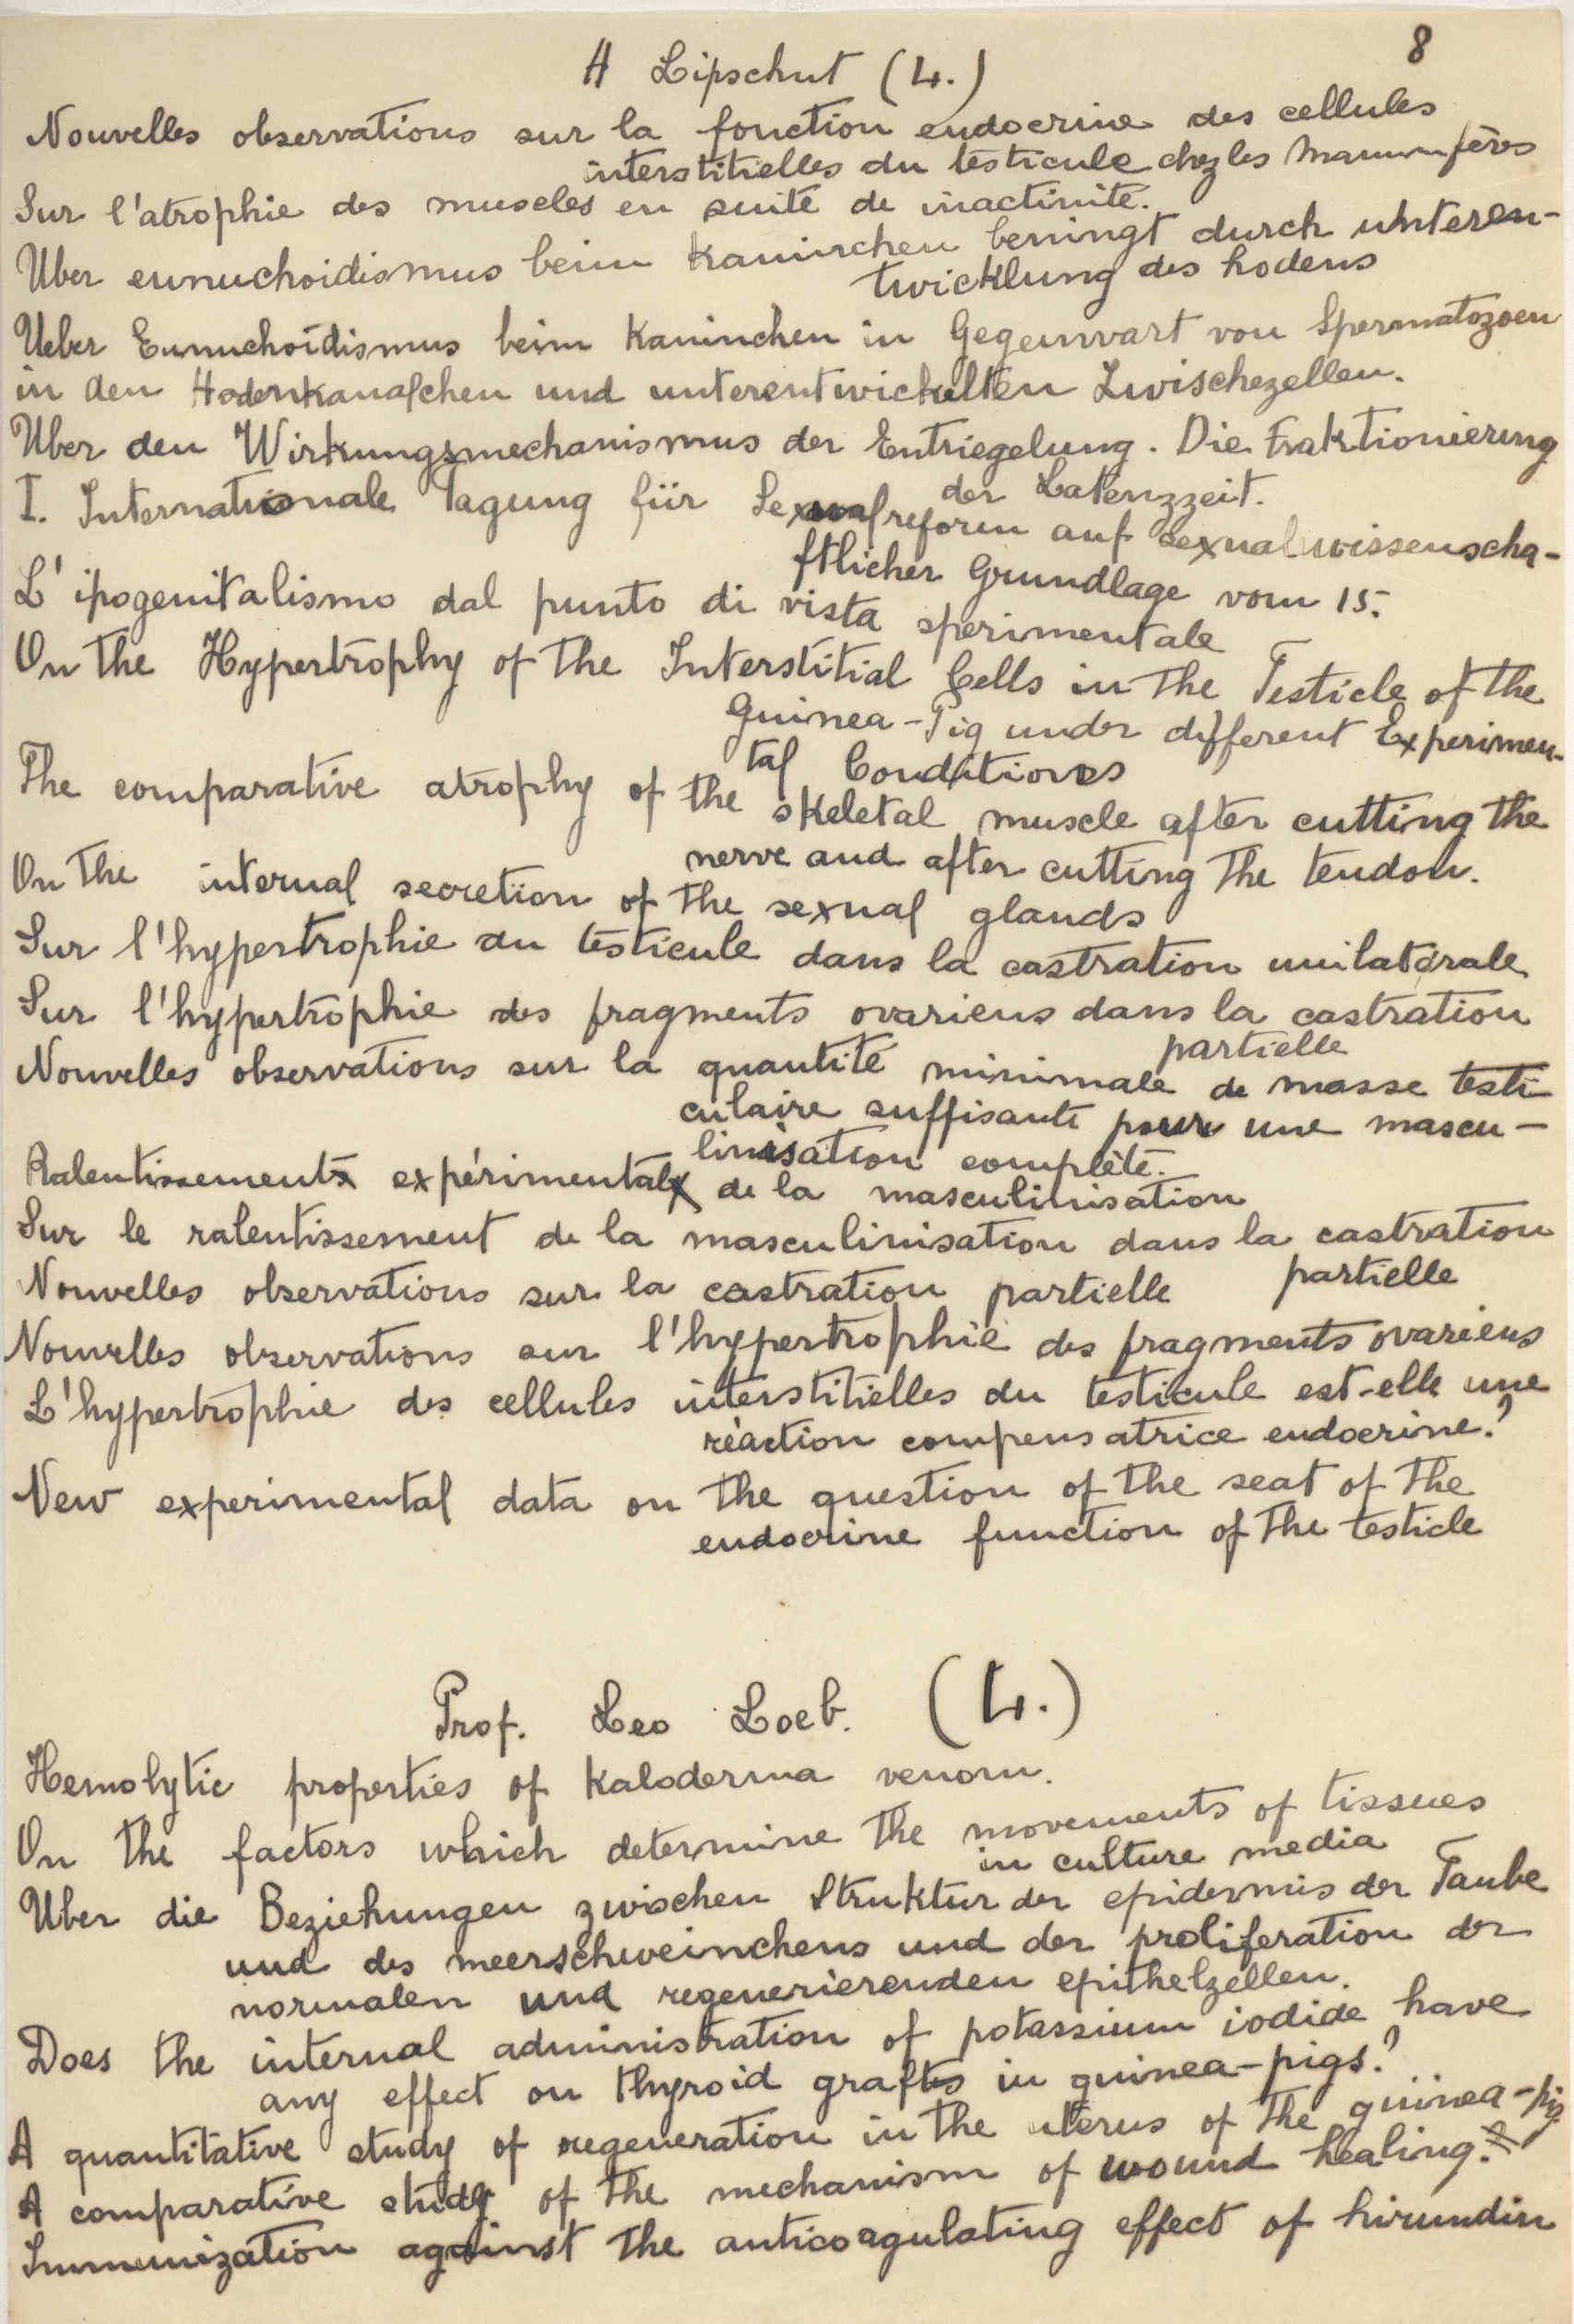 8
A Lipschut (L.)
Nouvelles observations sur la fonction endocrine des cellules
interstitielles du testicule chez les Mammifères
Sur l'atrophie des muscles en suite de inactivité.
Uber eunuchoidismus beim Kaninchen beningt durch unteren-
twicklung des hodens
Ueber Eunuchoidismus beim Kaninchen in Gegenwart von Spermatozoen
in den Hodenkanalchen und unterentwickelten Zwischezellen.
Uber den Wirkungsmechanismus der Entriegelung. Die Fraktionierung
der Latenzzeit.
I. Internationale Tagung für Sexualreform auf sexualwissenscha-
ftlicher Grundlage vom 15.
L'ipogenitalismo dal punto di vista sperimentale
On the Hypertrophy of the Interstitial Cells in the Testicle of the
Guinea-Pig under different Experimen-
tal Conditions
The comparative atrophy of the skeletal muscle after cutting the
nerve and after cutting the tendon.
On the internal secretion of the sexual glands
Sur l'hypertrophie du testicule dans la castration unilatérale
Sur l'hypertrophie des fragments ovariens dans la castration
partielle
Nouvelles observations sur la quantité minimale de masse testi-
culaire suffisante pour une mascu-
linisation complète.
Ralentissement expérimental de la masculinisation
Sur le ralentissement de la masculinisation dans la castration
partielle
Nouvelles observations sur la castration partielle
Nouvelles observations sur l'hypertrophie des fragments ovariens
L'hypertrophie des cellules interstitielles du testicule est-elle une
réaction compensatrice endocrine?
New experimental data on the question of the seat of the
endocrine function of the testicle
Prof. Leo Loeb. (L.)
Hemolytic properties of kaloderma venom.
On the factors which determine the movements of tissues
in culture media
Uber die Beziehungen zwischen Struktur der epidermis der Taube
und des meerschweinchens und der proliferation der
normalen und regenerierenden epithelzellen.
Does the internal administration of potassium iodide have
any effect on thyroid grafts in guinea-pigs?
A quantitative study of regeneration in the uterus of the guinea-pig
A comparative study of the mechanism of wound healing.
Immunization against the anticoagulating effect of hirundin